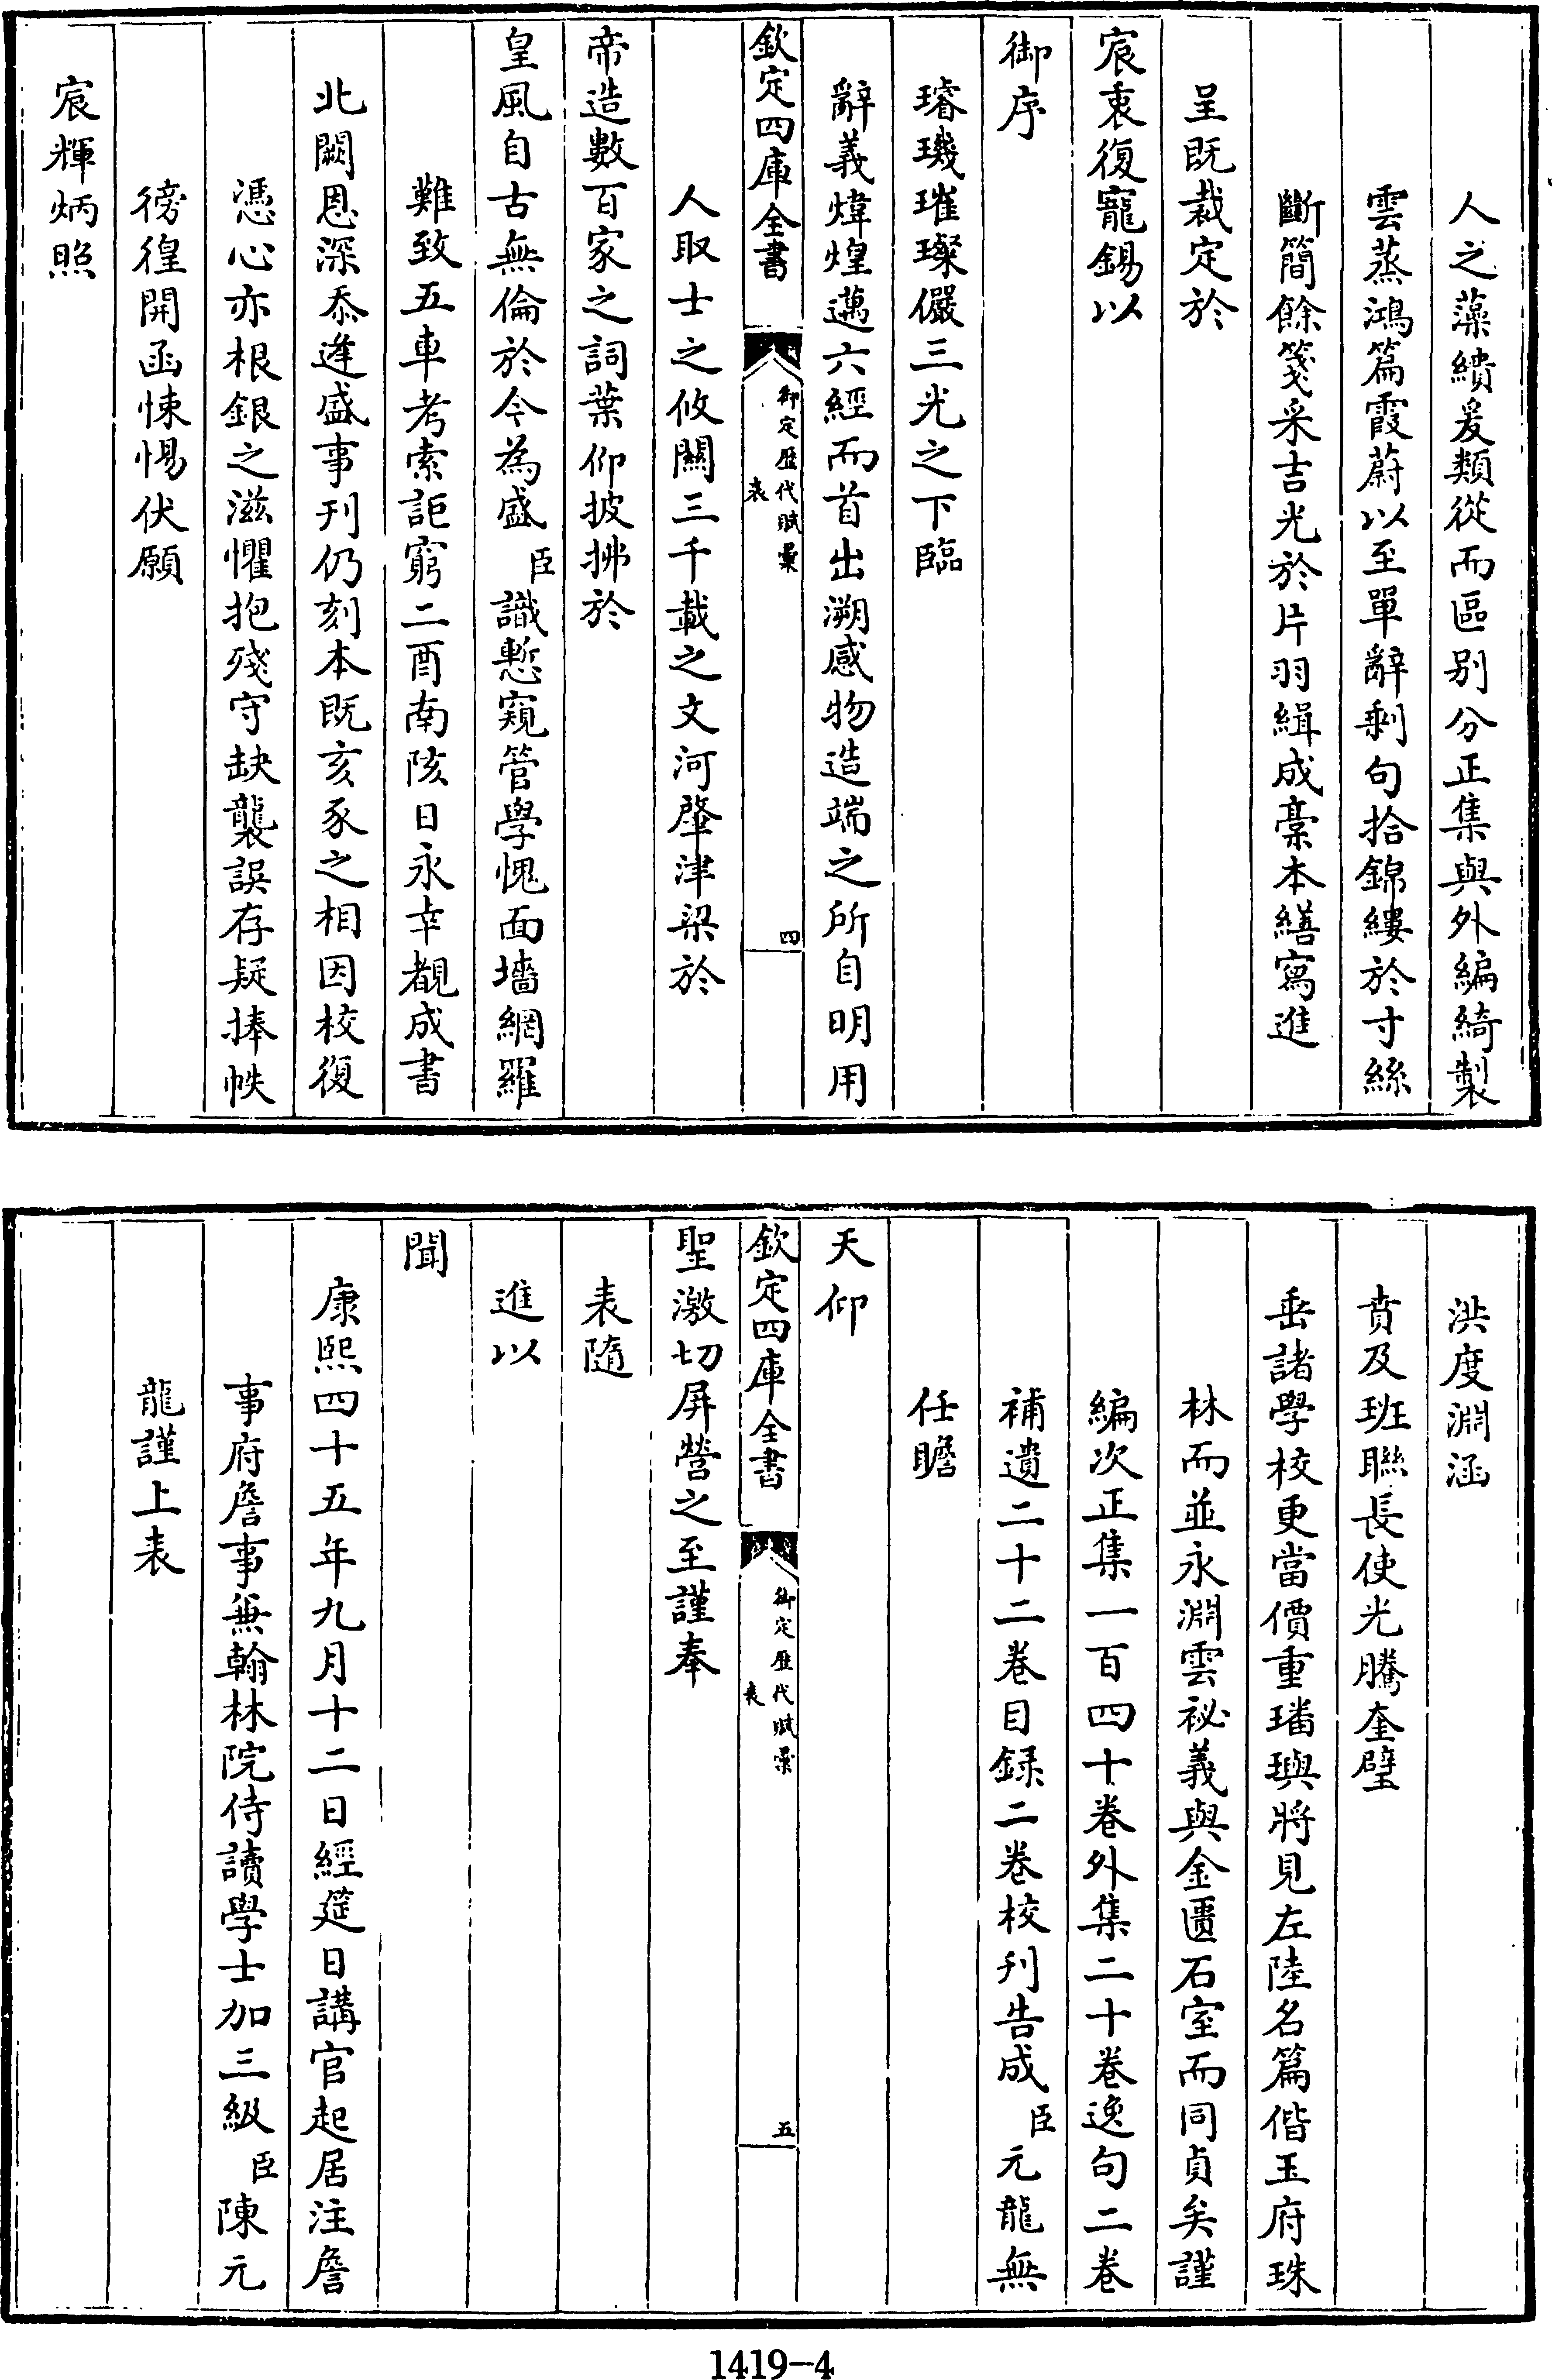 人之藻繢爰類從而區别分正集與外編綺製
雲蒸鴻篇霞蔚以至單辭剩句拾錦縷於寸絲
斷簡餘箋采吉光於片羽緝成槀本繕寫進
呈既裁定於
宸衷復寵錫以
御序
璿璣璀璨儼三光之下臨
辭義煒煌邁六經而首出溯感物造端之所自明用
欽定四庫全書
御定歷代賦彙
表
四
人取士之攸關三千載之文河肇津梁於
帝造數百家之詞葉仰披拂於
皇風自古無倫於今為盛臣識慙窺管學愧面墻網羅
難致五車考索詎窮二酉南陔日永幸覩成書
北闕恩深忝逢盛事刊仍刻本既亥豕之相因校復
憑心亦根銀之滋懼抱殘守缺襲誤存疑捧帙
徬徨開函悚惕伏願
宸輝炳照
洪度淵涵
賁及班聯長使光騰奎璧
垂諸學校更當價重璠璵將見左陸名篇偕玉府珠
林而並永淵雲祕義與金匱石室而同貞矣謹
編次正集一百四十卷外集二十卷逸句二卷
補遺二十二卷目録二卷校刋告成臣元龍無
任瞻
天仰
欽定四庫全書
御定歷代賦彙
表
五
聖激切屏營之至謹奉
表隨
進以
聞
康熙四十五年九月十二日經筵日講官起居注詹
事府詹事兼翰林院侍讀學士加三級臣陳元
龍謹上表
1419-4